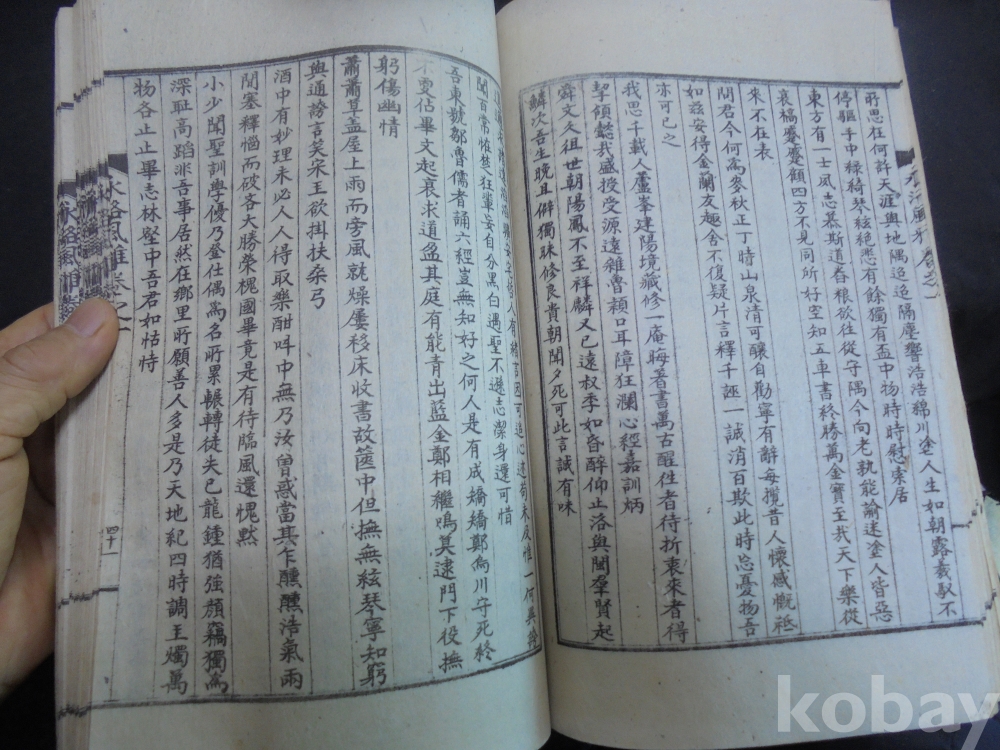 所思在何許天涯與地隅迢迢隔塵響浩浩綿川塗人生如朝露羲馭不
停驅手中綠綺琴絃絕悲有餘獨有盃中物時時慰索居
東方有一士夙志慕斯道舂粮欲往從守隅今向老孰能諭迷塗人皆惡
衰槁蹙蹙顧四方不見同所好空知五車書終勝萬金寶至我天下樂從
來不在表
問君今何爲麥秋正丁時山泉清可釀自勸寧有辭每攬昔人懷感慨祗
如茲安得金蘭友趣舍不復疑片言釋千誣一誠消百欺此時忘憂物吾
亦可已之
我思千載人蘆峯建陽境藏修一庵晦著書萬古醒徃者待折衷來者得
挈領懿我盛授受源遠雜魯穎口耳障狂瀾心經嘉訓炳
舜文久徂世朝陽鳳不至祥麟又已遠叔季如昏醉仰止洛與閩羣賢起
鱗次吾生晚且僻獨昧修良貴朝聞夕死可此言誠有味
聞百常惟焚狂輩妄自分黑白遇聖不遜志潔身還可惜
吾東號鄒魯儒者誦六經豈無知好之何人是有成矯矯鄭烏川守死終
不更佔畢文起衰求道盈其庭有能青出藍金鄭相繼鳴莫逮門下役撫
躬傷幽情
蕭蕭草盖屋上雨而旁風就燥屢移床收書故篋中但撫無絃琴寧知窮
與通謗言笑宋王欲掛扶桑弓
酒中有妙理未必人人得取樂酣呌中無乃汝曾惑當其乍醺醺浩氣兩
間塞釋惱而破吝大勝榮槐國畢竟是有待臨風還愧默
小少聞聖訓學優乃登仕偶爲名所累輾轉徒夫已龍鍾猶強顏竊獨爲
深耻高蹈非吾事居然在鄉里所願善人多是乃天地紀四時調玉燭萬
物各止止畢志林壑中吾君如怙恃
永洛風雅卷之一
四十一
kobay